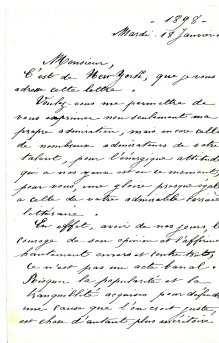 - 1898 -
Mardi 18 Janvier
Monsieur,
C'est de New York, que je vous
adresse cette lettre.
Veuillez vous me permettre de
vous exprimer non seulement ma
propre admiration, mais encore celle
de nombreux admirateurs de votre
talent, pour l'énergique attitude
qui a nos yeux est en ce moment,
pour vous, une gloire presque égale
a celle de votre admirable
littéraire.
En effet, avoir de nos jours, le
courage de son opinion et l'affirmer
hautement envers et contre tous,
ce n'est pas un acte banal.
Risquer la popularité et la
tranquillité acquises pour défendre
une cause que l'on croit juste,
est chose d'autant plus méritoire